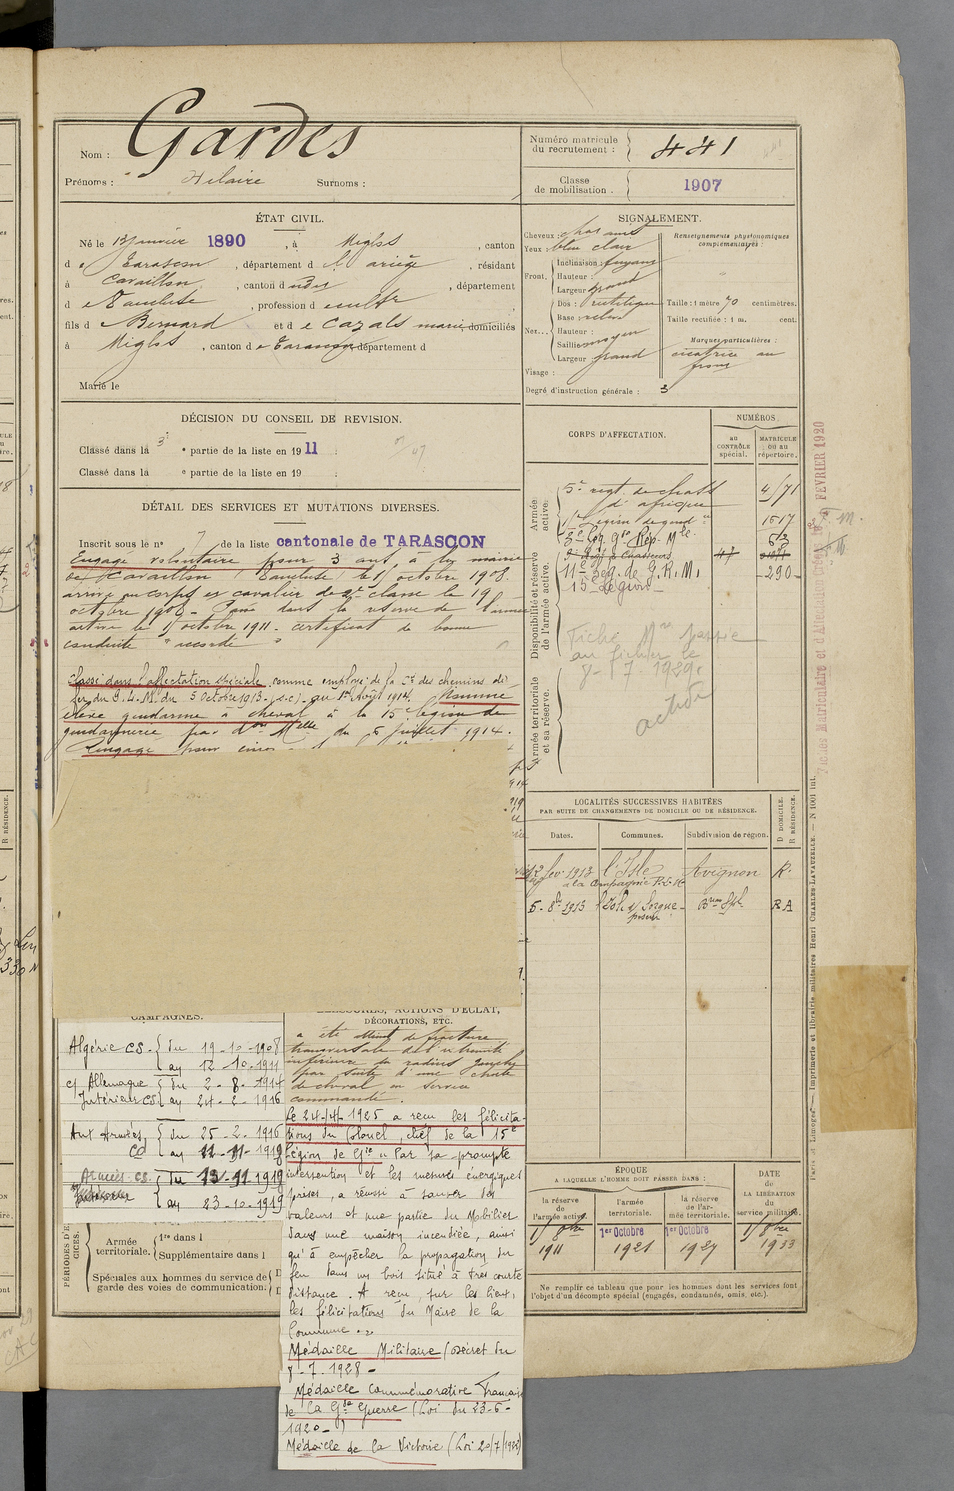 Nom : Gardes
Prénoms : Hilaire Surnoms :
Numéro matricule du recrutement : 441
Classe de mobilisation . 1907
ÉTAT CIVIL.
Né le 13 janvier 1890 , à Miglos , canton
d e Tarascon , département d e l'ariège , résidant
à Cavaillon , canton d , département
d e Vaucluse , profession d
fils d e Bernard et d e Cazals marie domiciliés
à Miglos , canton d e Tarascon département d
Marié le
SIGNALEMENT.
Cheveux : chat. moy.
Yeux : bleu clair
Front.
Inclinaison : fuyant
Hauteur :
Largeur : grand
Nez...
Dos : rectiligne
Base : relevé
Hauteur :
Saillie : moyen
Largeur : grand
Visage :
Renseignements physionomiques complémentaires :
Taille : 1 mètre 70 centimètres.
Taille rectifiée : 1 m. cent.
Marques particulières :
cicatrice au
front
Degré d'instruction générale : 3
DÉCISION DU CONSEIL DE REVISION.
Classé dans la 3e partie de la liste en 1911
Classé dans la e partie de la liste en 19 :
DÉTAIL DES SERVICES ET MUTATIONS DIVERSES.
Inscrit sous le n° 7 de la liste cantonale de TARASCON
Engagé volontaire pour 3 ans, à la mairie
de Cavaillon (Vaucluse) le 15 octobre 1908.
arrivé au corps et cavalier de 2e classe le 19
octobre 1908 - Passé dans la réserve de l'armée
active le 15 octobre 1911 - certificat de bonne
conduite "accordé"
Classé dans l'affectation spéciale comme employé de la Cie des chemins de
fer du P.L.M. du 5 octobre 1913 au 1er Août 1914. Nommé
élève gendarme à cheval à la 15e légion de
gendarmerie par don Melle du 6 juillet 1914.
Rengagé pour
CORPS D'AFFECTATION.
NUMÉROS.
au CONTRÔLE spécial.
MATRICULE ou au répertoire.
Armée active.
5e régt de chass
d'afrique 4171
15e Légion de gend ie 1617
Disponibilité et réserve de l'armée active.
11e Leg. de G. R. M. 290
15e Légion
Armée territoriale et sa réserve.
Fiche Mle passée
au fichier le
8-7-1929.
LOCALITÉS SUCCESSIVES HABITÉES
PAR SUITE DE CHANGEMENTS DE DOMICILE OU DE RÉSIDENCE.
Dates. Communes. Subdivision de région. D DOMICILE. R RÉSIDENCE.
fév 1913 l'Isle Avignon R.
à la Compagnie P.L.M
5. 8bre 1913 l'Isle s/ Sorgue RA
CAMPAGNES.
Algérie CS. du 19-10-1908
au 12-10-1911
c/ Allemagne du 2-8-1914
Intérieur CS au 24-2-1916
Aux Armées, du 25-2-1916
CC au 11-11-1918
Armées CS. du 12-11-1918
au 23-10-1919
BLESSURES, ACTIONS D'ÉCLAT,
DÉCORATIONS, ETC.
a été atteint de fracture
transversale de l'extrémité
inférieure du radius gauche
par suite d'une chute
de cheval en service
commandé.
Le 24-4-1925 a reçu les félicita-
tions du Colonel, chef de la 15e
Légion de Gie " Par sa prompte
intervention et les mesures énergiques
prises, a réussi à sauver des
valeurs et une partie du Mobilier
dans une maison incendiée, ainsi
qu'à empêcher la propagation du
feu dans un bois situé à très courte
distance. A reçu, sur les lieux,
les félicitations du Maire de la
Commune."
Médaille Militaire (Décret du
8-7-1928-
Médaille Commémorative Française
de la Gde Guerre (Loi du 23-6-
1920-)
Médaille de la Victoire (Loi 20/7/1922)
PÉRIODES D'EXERCICES.
Armée territoriale.
1re dans l
Supplémentaire dans l
Spéciales aux hommes du service de
garde des voies de communication.
ÉPOQUE
A LAQUELLE L'HOMME DOIT PASSER DANS :
la réserve de l'armée active.
l'armée territoriale.
la réserve de l'armée territoriale.
DATE DE LA LIBÉRATION du service militaire.
15 8bre 1911
1er Octobre 1921
1er Octobre 1927
15 8bre 1933
Ne remplir ce tableau que pour les hommes dont les services font
l'objet d'un décompte spécial (engagés, condamnés, omis, etc.).
Paris et Limoges. — Imprimerie et librairie militaires Henri CHARLES-LAVAUZELLE. — N 1001 int.
FÉVRIER 1920